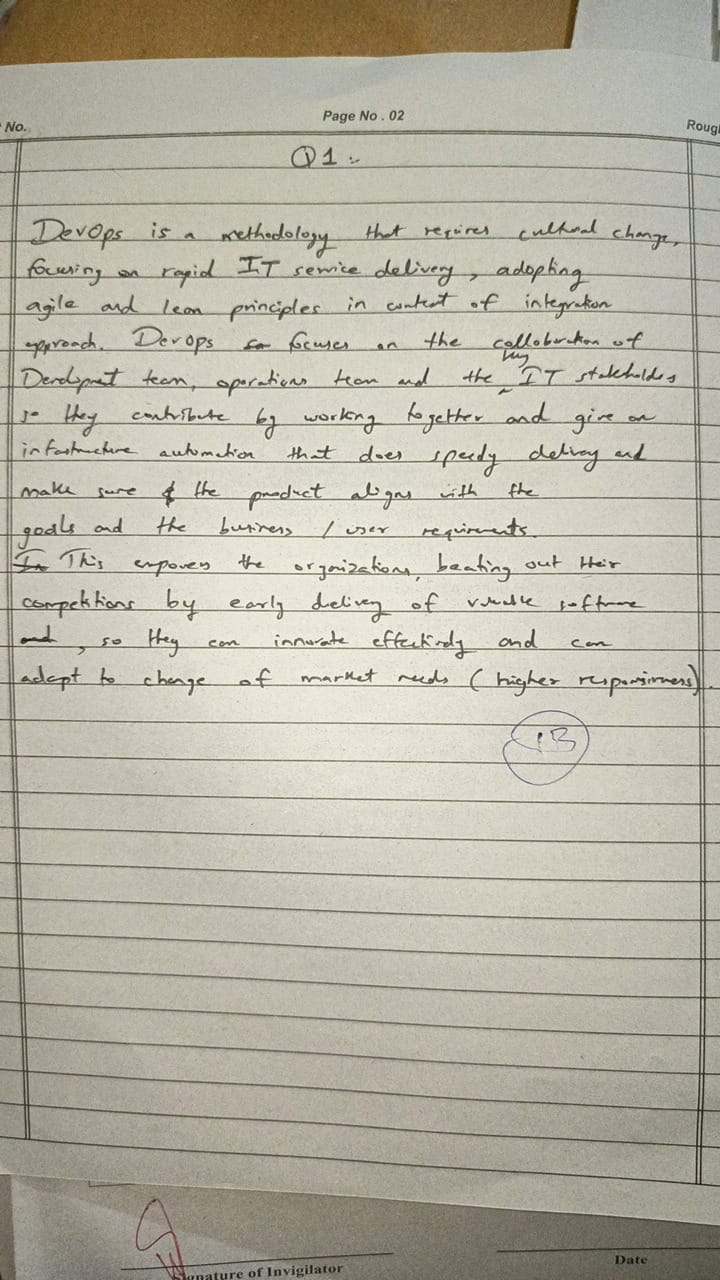 No.
Page No . 02
Roug
Q1 :-
DevOps is a methodology that requires cultural change,
focusing on rapid IT service delivery, adopting
agile and lean principles in context of integration
approach. DevOps focuses on the collaboration of
Development team, operations team and the IT stakeholders
so they contribute by working together and give an
infastructure automation that does speedy delivery and
make sure the product aligns with the
goals and the business / user requirements.
This empowers the organizations, beating out their
competitions by early delivery of valuable software
, so they can innovate effectively and can
adapt to change of market needs (higher responsiveness).
Signature of Invigilator
Date